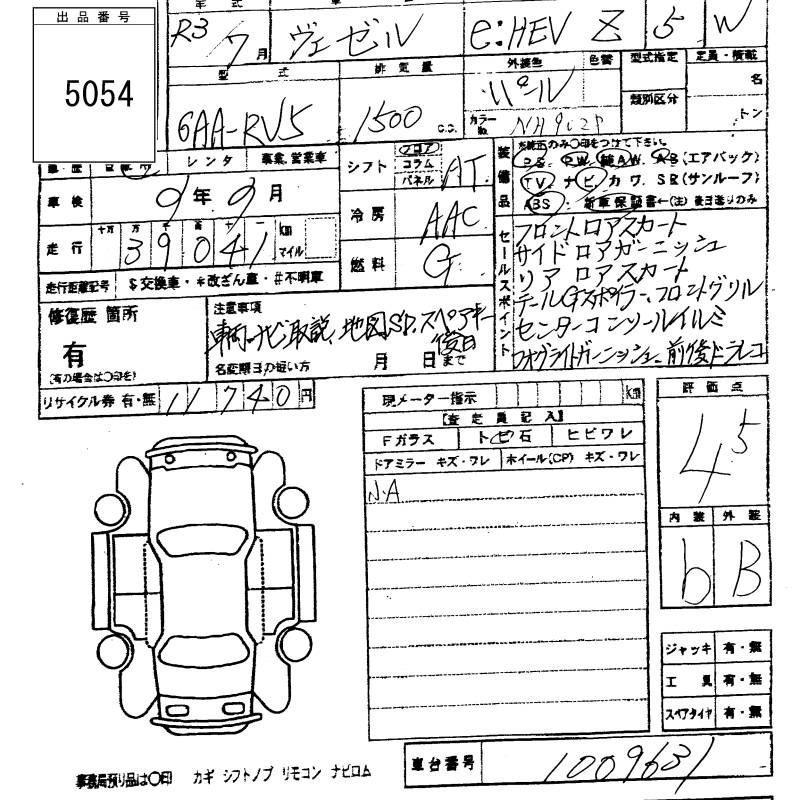 出品番号
5054
R3 7月 ヴェゼル e:HEV Z 5 W
型式 排気量 外装色 色替 型式指定 定員・積載
6AA-RV5 1500 C.C. パール 類別区分 名
カラーNo. NH902P トン
レンタ 事業、営業車
シフト フロア コラム パネル AT
装備品 ※純正のみ〇印をつけて下さい。
PS. PW. AW. AB(エアバッグ)
TV. ナビ. カワ. SR(サンルーフ)
ABS. 新車保証書←(注)後日送りのみ
車検 9年9月
冷房 AAC
走行 十万 万 千 百 十 39041 km マイル
燃料 G
走行距離記号 $交換車・*改ざん車・#不明車
セールスポイント
フロントロアスカート
サイドロアガーニッシュ
リアロアスカート
テールGスポイラー、フロントグリル
センターコンソールイルミ
フォグライトガーニッシュ 前後ドラレコ
修復歴 箇所
有
(有の場合は〇印を)
注意事項
車両、ナビ取説、地図SD、スペアキー後日
名変期日の短い方 月 日まで
リサイクル券 有・無 11740円
現メーター指示 km
【査定員記入】
Fガラス トビ石 ヒビワレ
ドアミラー キズ・ワレ ホイール(CP) キズ・ワレ
小A
評価点
4.5
内装 外装
b B
ジャッキ 有・無
工具 有・無
スペアタイヤ 有・無
車台番号 1009631
事務局預り品は〇印 カギ シフトノブ リモコン ナビロム